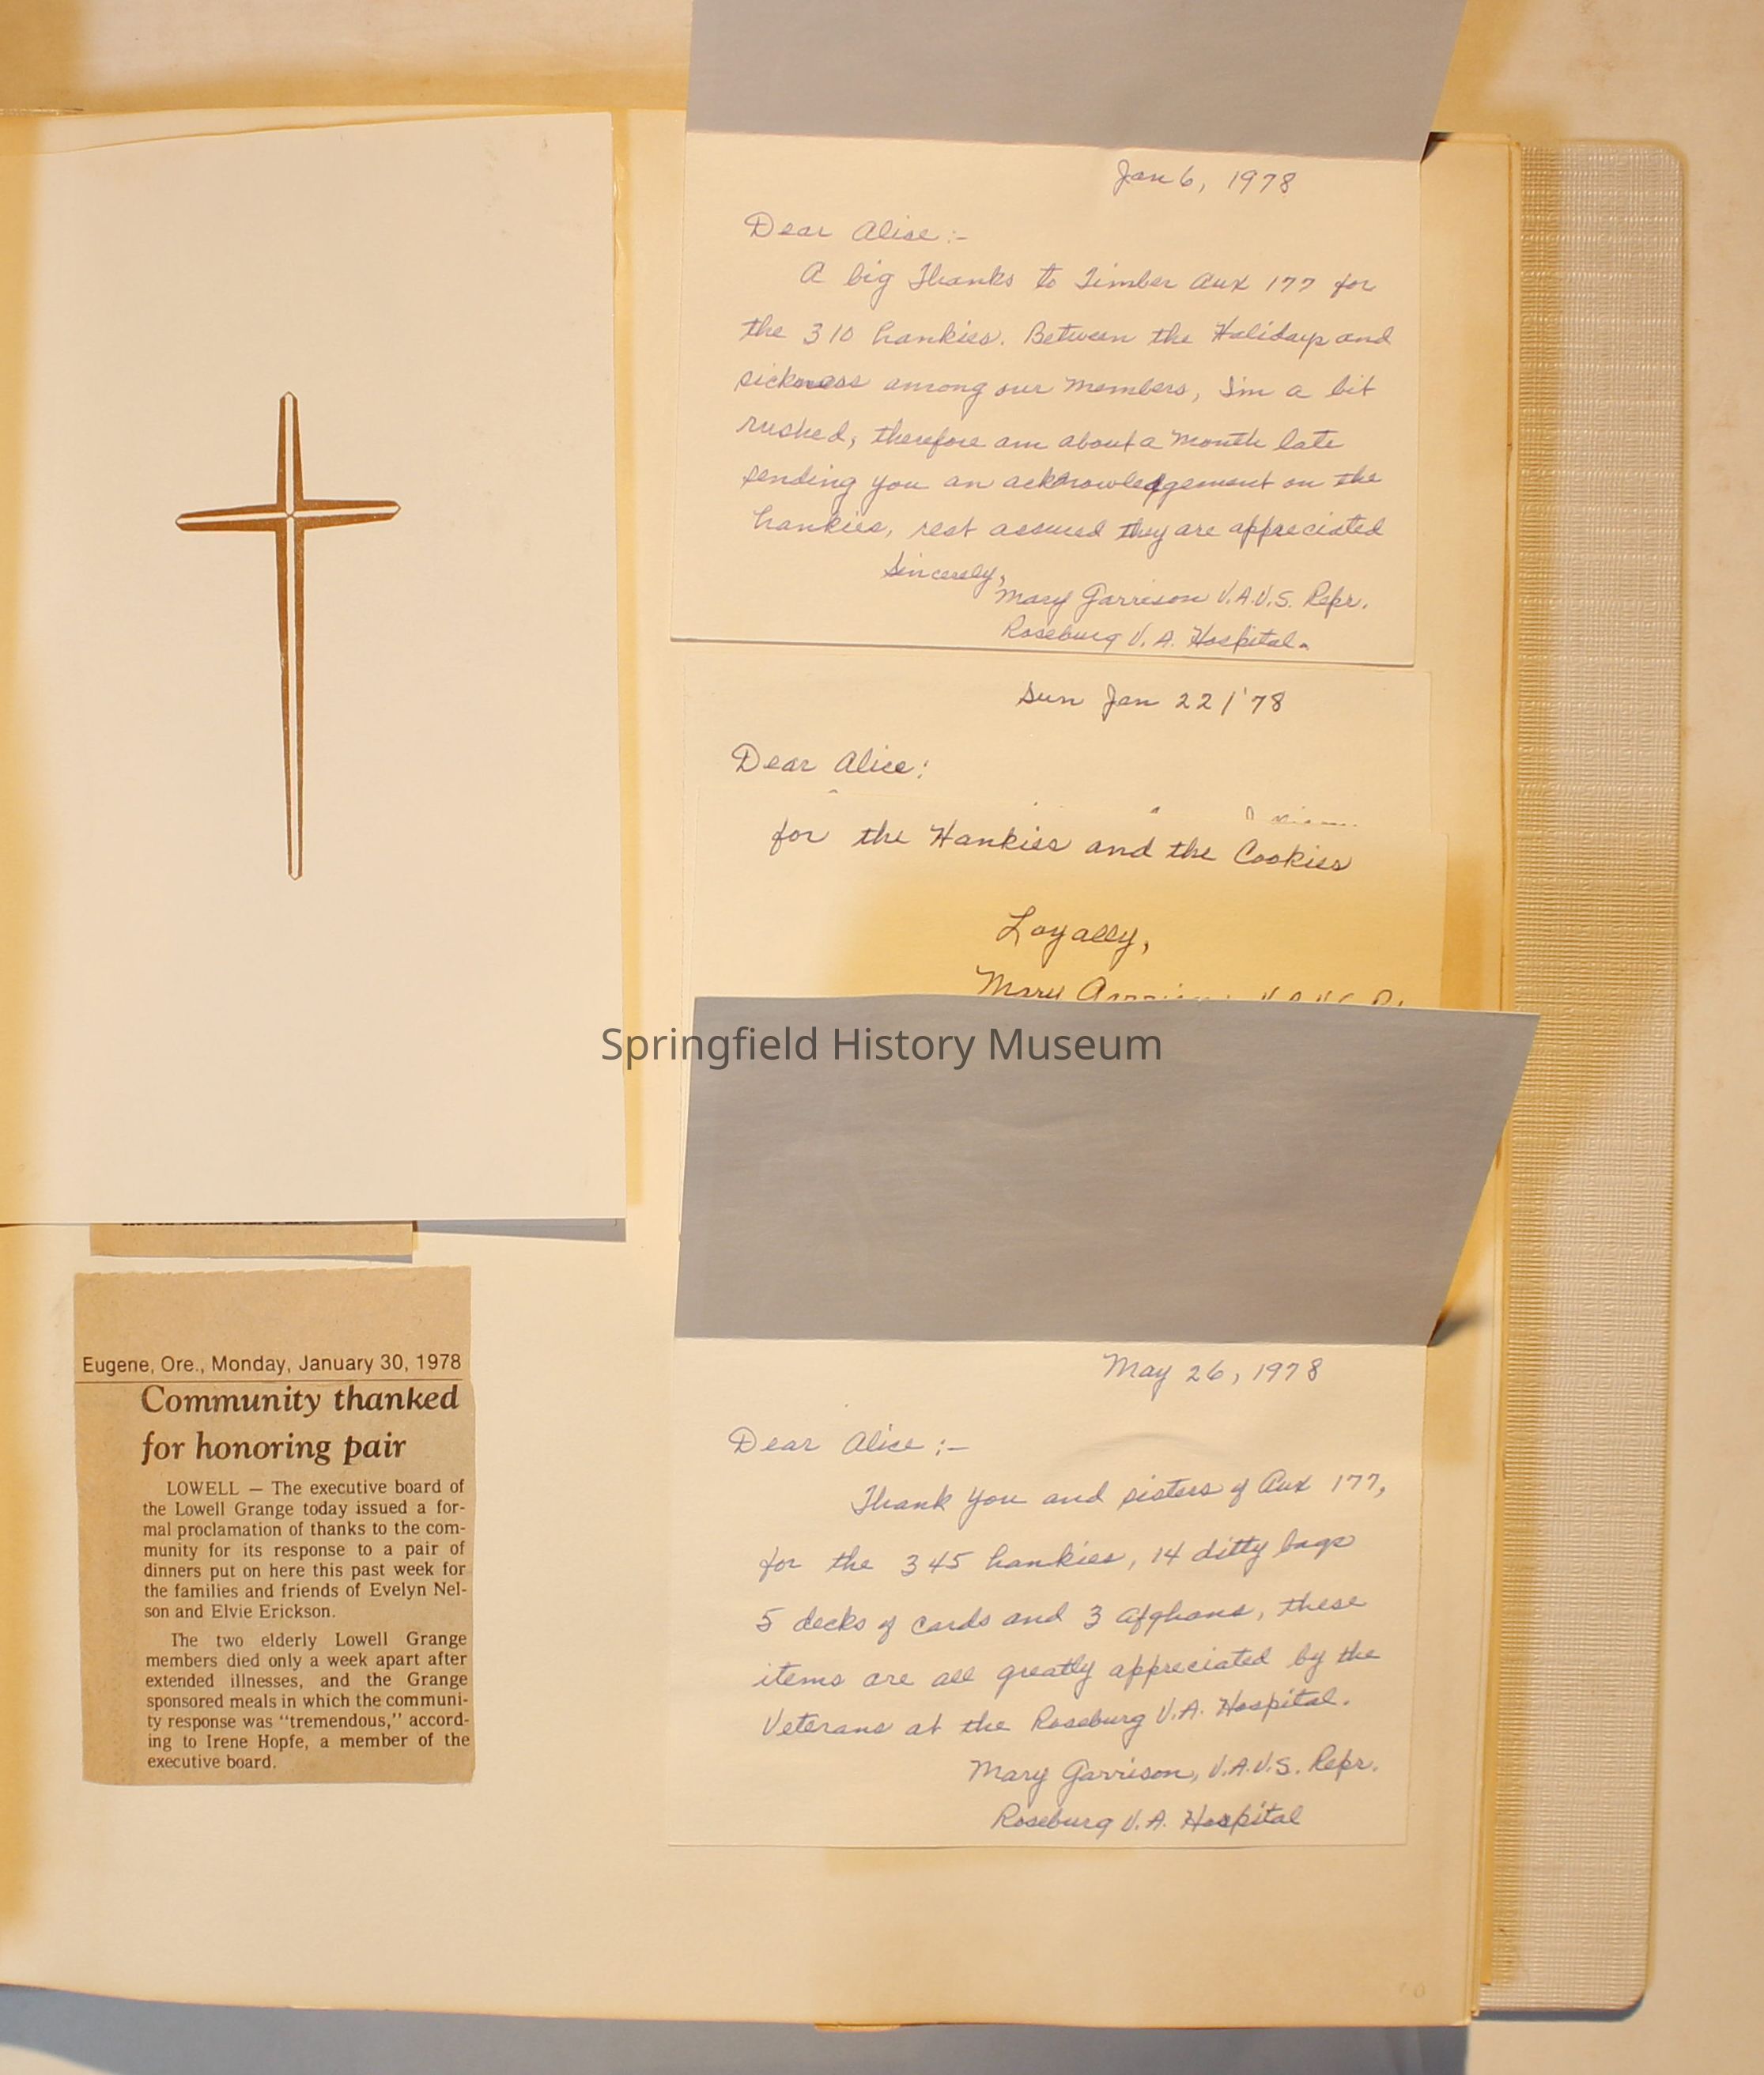 Jan 6, 1978
Dear Alice :-
A big Thanks to Timber Aux 177 for
the 310 hankies. Between the Holidays and
sickness among our members, I'm a bit
rushed, therefore am about a month late
sending you an acknowledgement on the
hankies, rest assured they are appreciated
Sincerely,
Mary Garrison V.A.V.S. Repr.
Roseburg V.A. Hospital.
Sun Jan 22/'78
Dear Alice:
for the Hankies and the Cookies
Loyally,
Mary Garrison
Springfield History Museum
May 26, 1978
Dear Alice :-
Thank you and sisters of Aux 177,
for the 345 hankies, 14 ditty bags
5 decks of cards and 3 afghans, these
items are all greatly appreciated by the
Veterans at the Roseburg V.A. Hospital.
Mary Garrison, V.A.V.S. Repr.
Roseburg V.A. Hospital
Eugene, Ore., Monday, January 30, 1978
Community thanked
for honoring pair
LOWELL — The executive board of
the Lowell Grange today issued a for-
mal proclamation of thanks to the com-
munity for its response to a pair of
dinners put on here this past week for
the families and friends of Evelyn Nel-
son and Elvie Erickson.
The two elderly Lowell Grange
members died only a week apart after
extended illnesses, and the Grange
sponsored meals in which the communi-
ty response was "tremendous," accord-
ing to Irene Hopfe, a member of the
executive board.